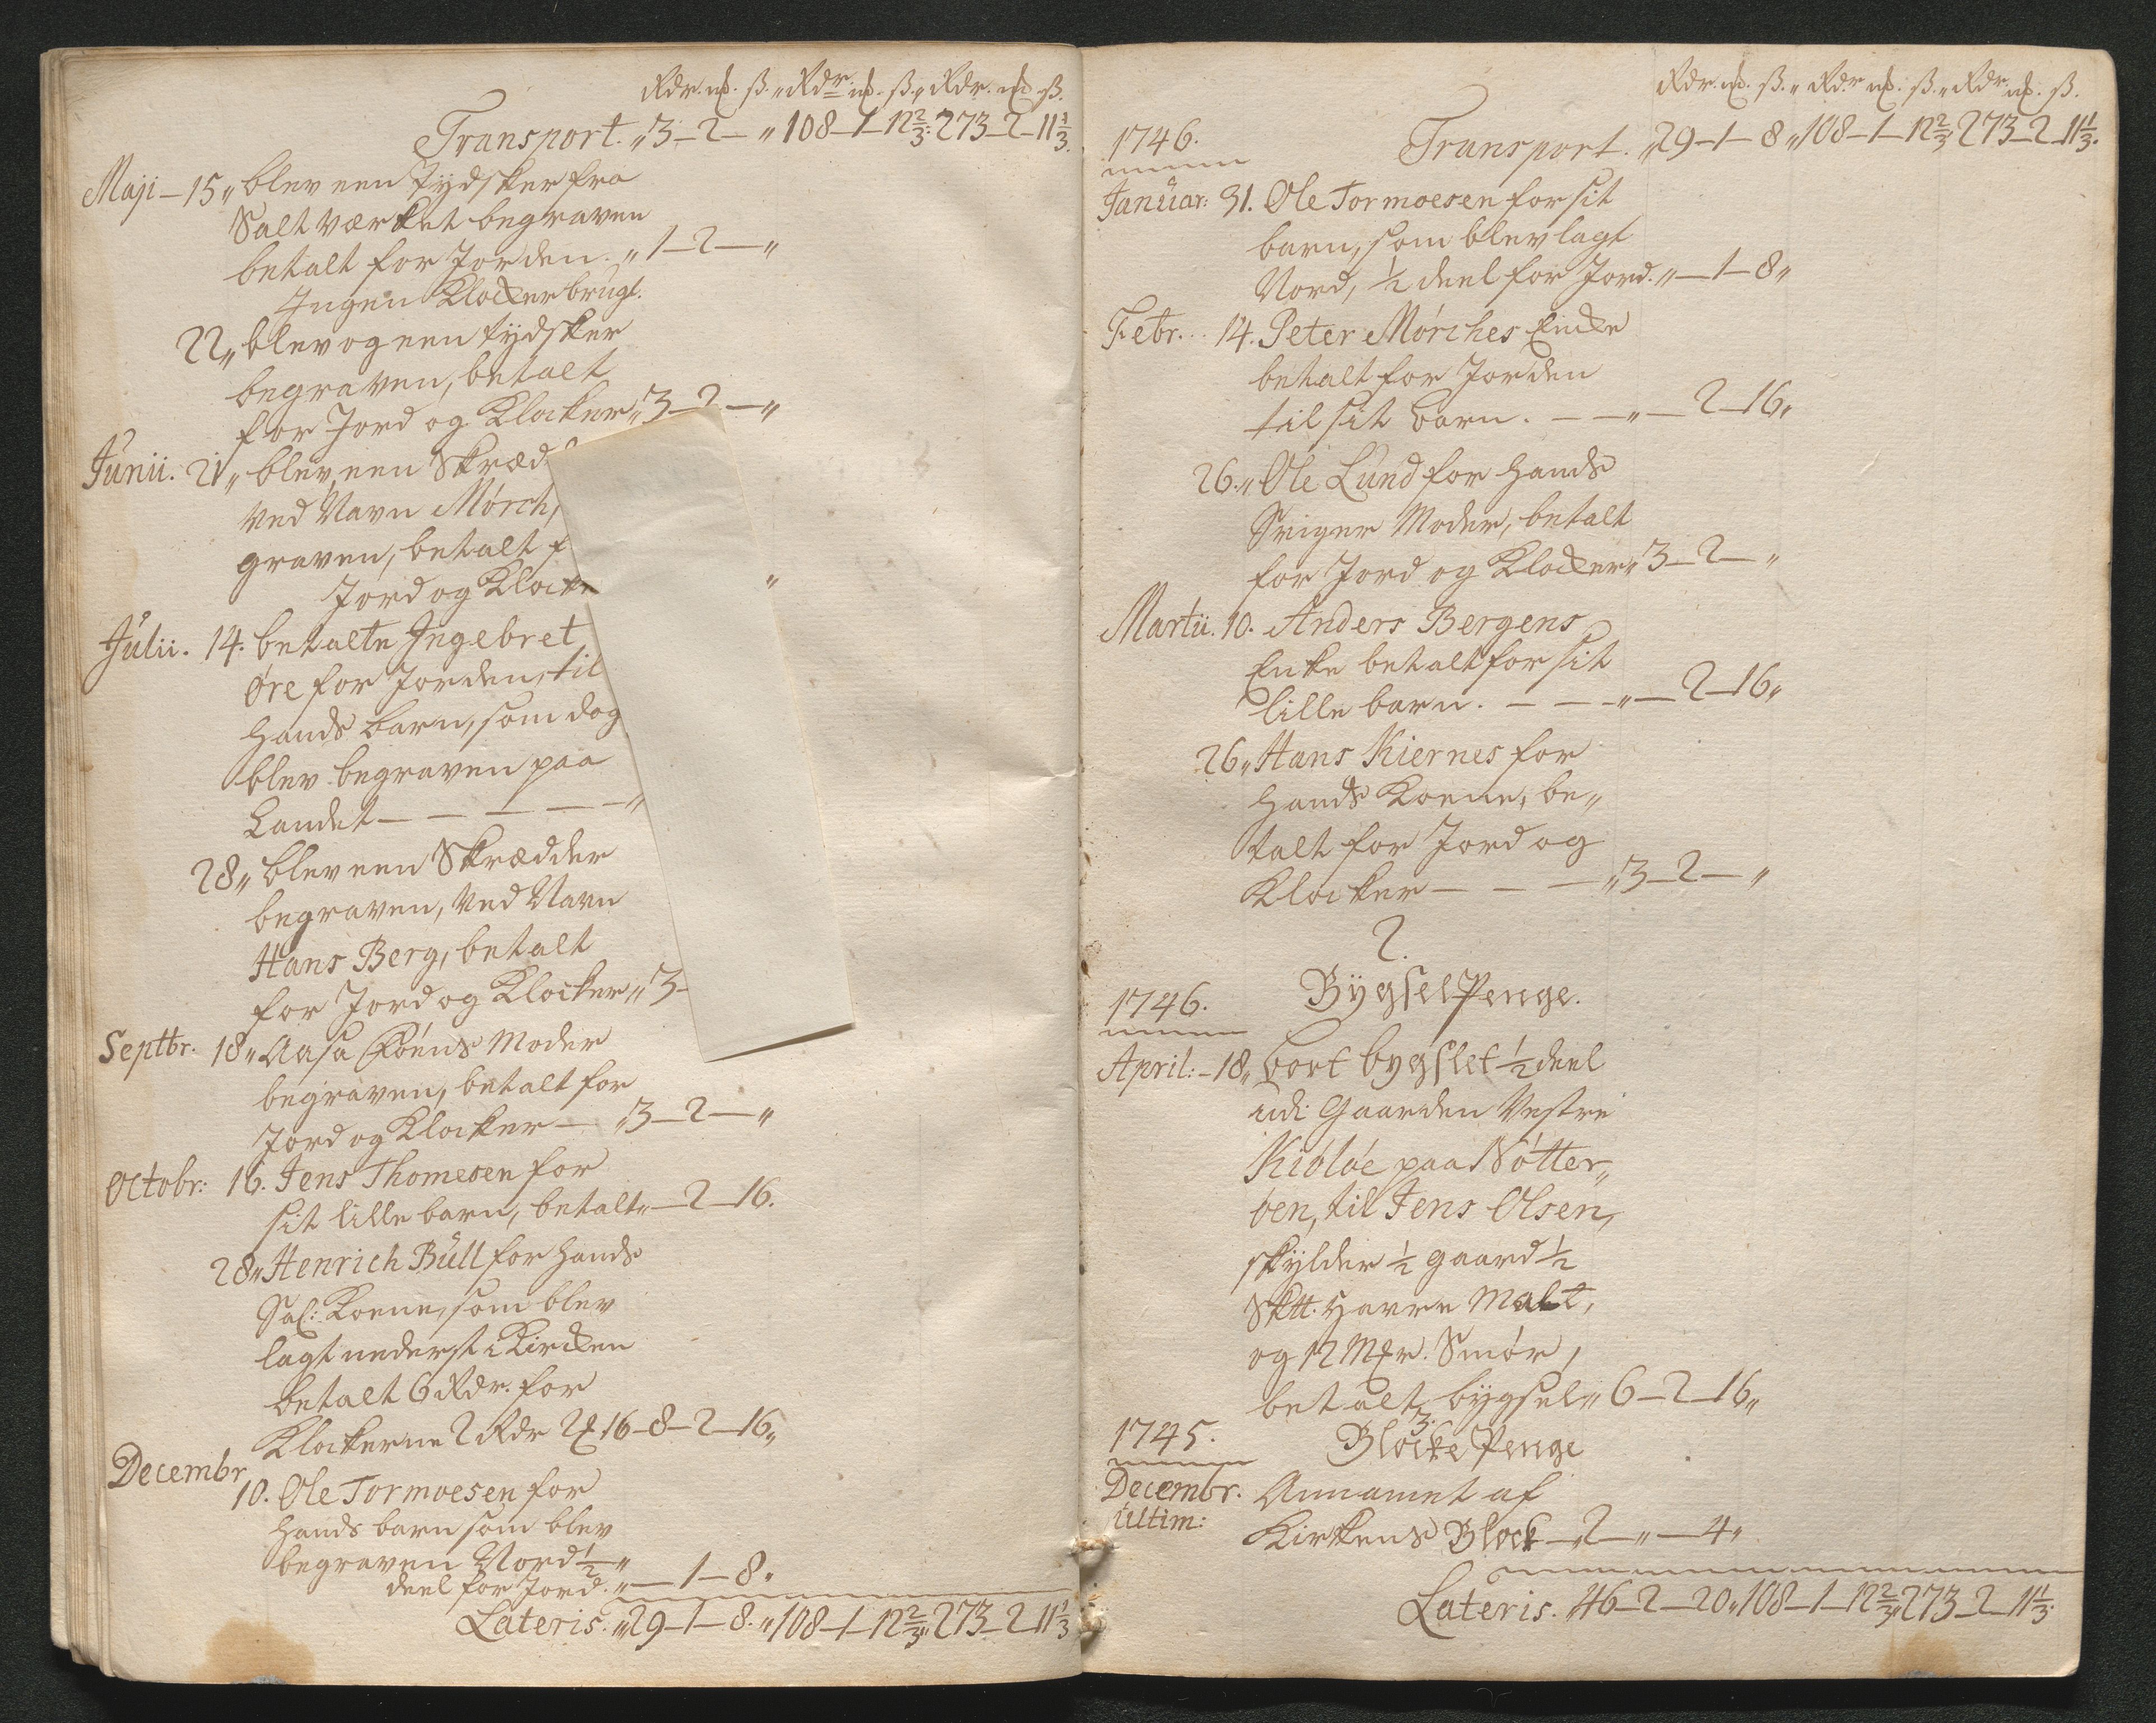 Rdr. mk. ß. „ Rdr. mk. ß. „ Rdr. mk. ß.
Transport. „ 3 – 2 – „ 108 – 1 – 12 2/3. 273 – 2 – 11 1/3.
Maji – 15 „ blev een Tydsker fra
Saltværket begraven
betalt for Jorden. „ 1 – 2 – „
Ingen Klocker brugt.
22 „ blev og een tydsker
begraven, betalt
for Jord og Klocker „ 3 – 2 – „
Junii. 21 „ blev een Skræd
ved Navn Mórch,
graven, betalt f
Jord og Klock „
Julii. 14. betalte Ingebret
Øre for Jorden, til
hands barn, som dog
blev begraven paa
Landet – – – – – „
28 „ blev een Skrædder
begraven, ved Navn
Hans Berg, betalt
for Jord og Klocker „ 3 –
Septbr. 18 „ Aasa Moder
begraven, betalt for
Jord og Klocker – „ 3 – 2 – „
Octobr: 16. Jens Thomesen for
sit lille barn, betalt „ – 2 – 16.
28 „ Henrich Büll for hands
Sal: Koene, som blev
lagt nederst i Kircken
betalt 6 Rdr. for
Klockerne 2 Rdr 2 mk 16 – 8 – 2 – 16 „
Decembr
10. Ole Tormoesen for
hands barn som blev
begraven Nord 1/2 „
deel for Jord. „ – 1 – 8 „
Lateris. „ 29 – 1 – 8. „ 108 – 1 – 12 2/3 „ 273 – 2 – 11 1/3
Rdr. mk. ß. „ Rdr mk. ß. „ Rdr mk. ß.
1746. Transport. „ 29 – 1 – 8 „ 108 – 1 – 12 2/3 273 – 2 – 11 1/3.
Januar: 31. Ole Tormoesen for sit
barn, som blev lagt
Nord, 1/2 deel for Jord. „ – 1 – 8 „
Febr. 14. Peter Mórches Encke
betalt for Jorden
til sit barn. – – „ – 2 – 16 „
26. „ Ole Lund for hands
Sviger Moder, betalt
for Jord og Klocker „ 3 – 2 – „
Martii. 10. Anders Bergens
Enke betalt for sit
lille barn. – – – „ – 2 – 16 „
26 „ Hans Kiernes for
hands Koene, be „
talt for Jord og
Klocker – – – „ 3 – 2 – „
2.
1746. Bygsel Penge.
April: – 18 „ bort bygslet 1/2 deel
udi Gaarden Vestre
Kióló́e paa Nótter „
óen, til Jens Olsen,
skylder 1/2 gaard 1/2
Sktt. Havre Malt,
og 12 Mkr. Smór,
betalt bygsel „ 6 – 2 – 16 „
3.
1745. Blocke Penge
Decembr. Annamet af
Ultim: Kirkens Block – „ 2 – „ – 4 „
Lateris. „ 46 – 2 – 20 „ 108 – 1 – 12 2/3 „ 273 – 2 – 11 1/3.